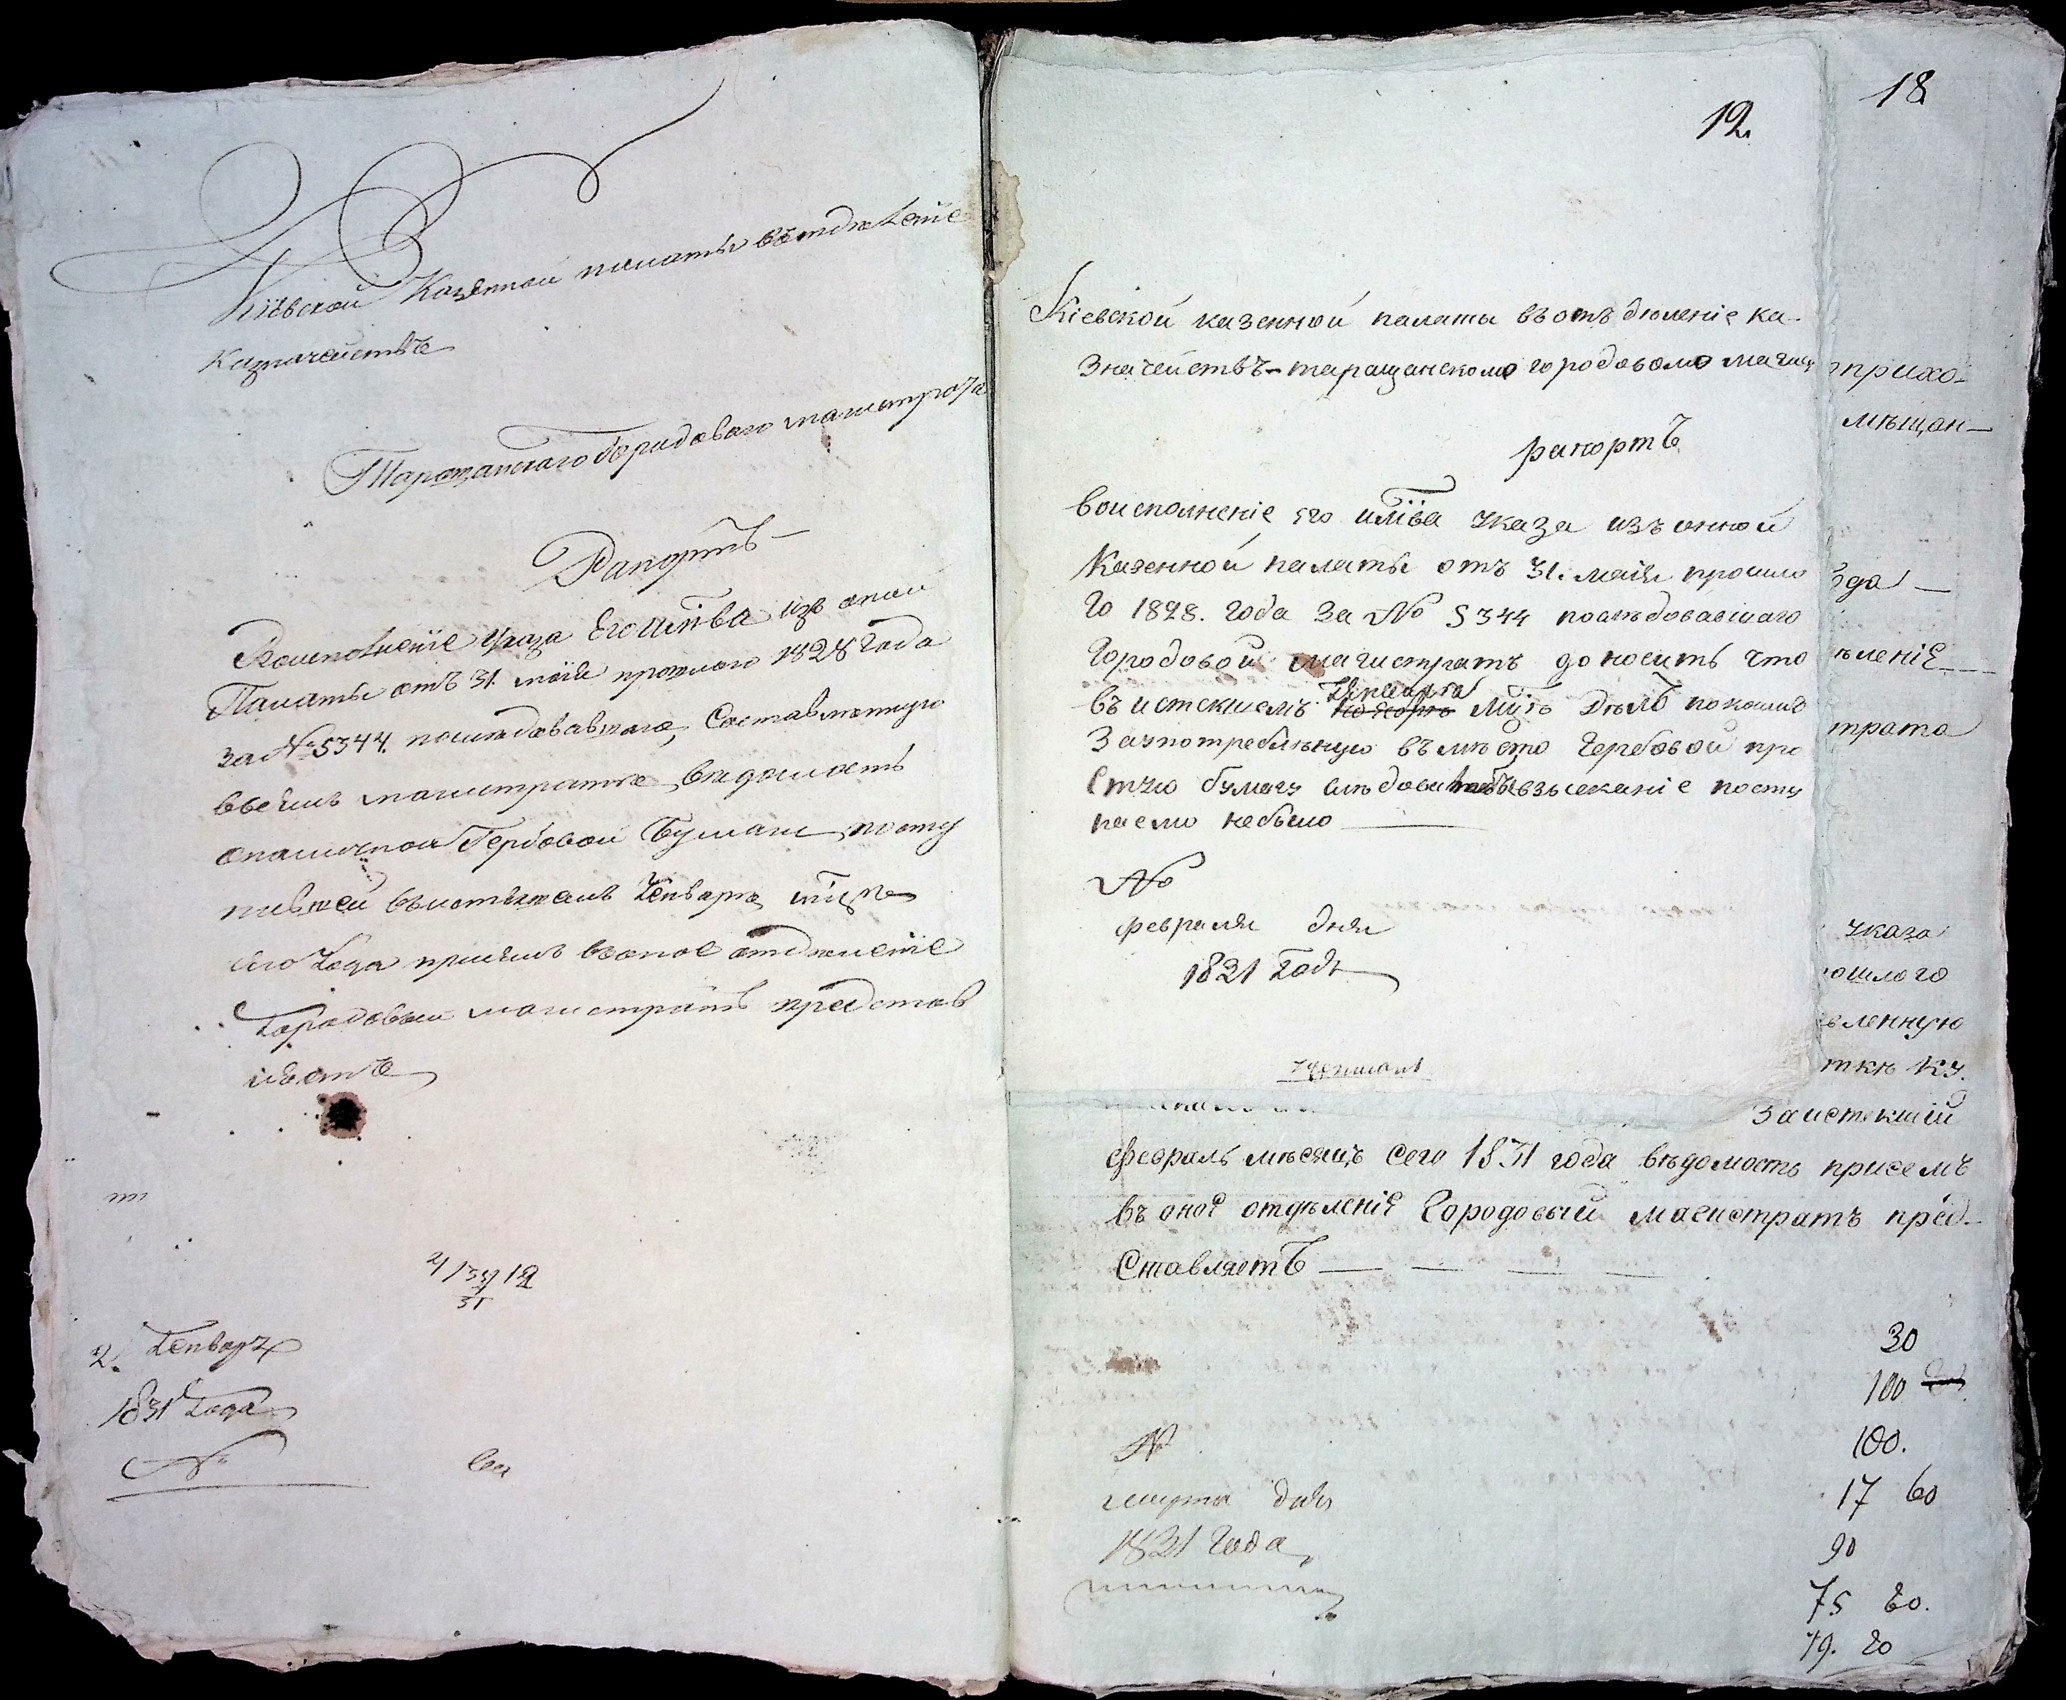 Кіевской Казенной палаты въ отдѣленіе
Казначействъ
Таращанскаго Городоваго магистрата
Рапортъ
Воисполненіе указа Его ИМПВА изъ оной
Палаты отъ 31. маія прошлаго 1828 Года
за № 5344. последовавшаго, Составленную
въ семъ магистрате ведомость
оналичной Гербовой Бумаги посту
пившей въ истекшемъ Генваре мце
сего Года присемъ воное отделеніе
Городовый магистратъ представ
ляетъ
Генваря
1831 Года
№
18
12.
Кіевской казенной палаты въ отъделеніе ка-
значействъ таращанскаго городоваго магис
рапортъ
воисполненіе его ИМПВА указа изъ онной
Казенной палаты отъ 31. маія прошла
го 1828. года за № 5344 последовавшаго
Городовой магистратъ доноситъ что
въ истекшемъ Генваре мце Делъ покоимъ
За употребленную въместо Гербовой про
стую бумагу следовало бы взысканіе посту
паемо небыло
№
февраля дня
1831 Года
прихо-
мѣщан-
ода
ѣленіе
трата
указа
ошлаго
вленную
За истекшій
февраль мѣсяцъ сего 1831 года вѣдомость присемъ
въ оное отдѣленіе Городовый магистратъ пред-
ставляетъ
30
100
№
100.
марта дня
17 60
1831 Года
90
75 20.
19. 20